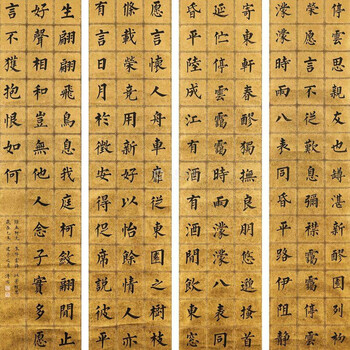 停雲思親友也罇湛新醪園列初
榮願言不從歎息彌襟靄靄停雲
濛濛時雨八表同昏平路伊阻靜
寄東軒春醪獨撫良朋悠邈搔首
延佇停雲靄靄時雨濛濛八表同
昏平陸成江有酒有酒閒飲東窗
願言懷人舟車靡從東園之樹枝
條載榮競用新好以怡餘情人亦
有言日月於征安得促席說彼平
生翩翩飛鳥息我庭柯斂翮閒止
好聲相和豈無他人念子實多願
言不獲抱恨如何